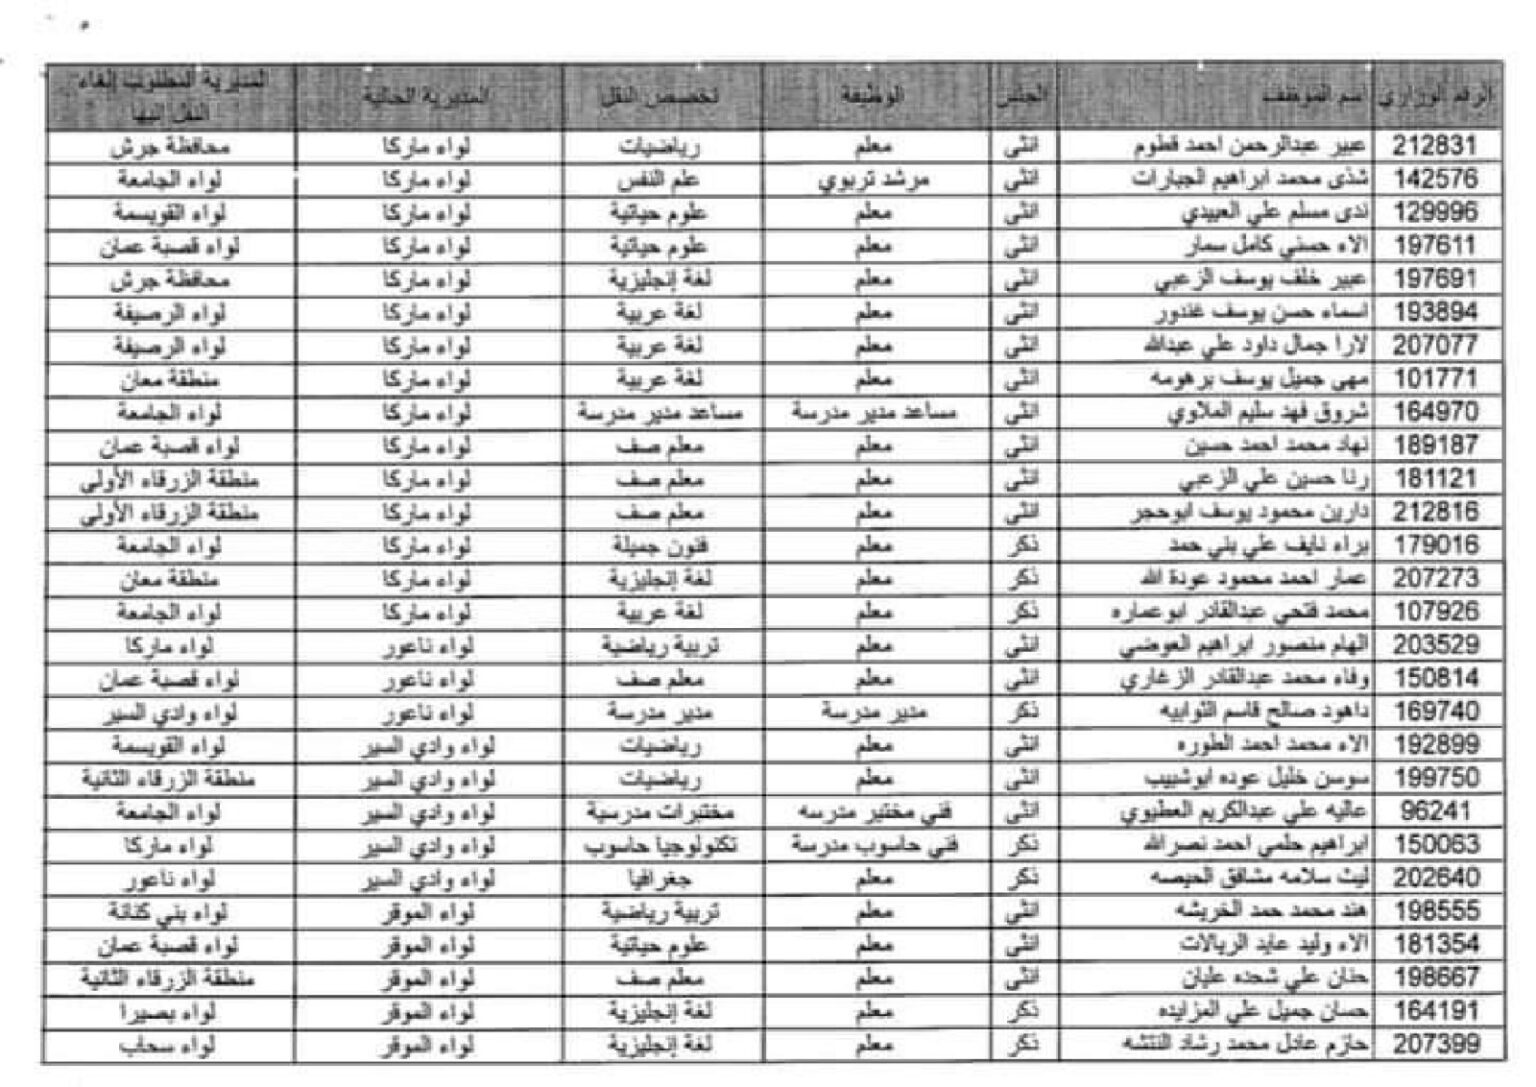 الرقم الوزاري اسم الموظف الجنس الوظيفة تخصص النقل المديرية الحالية المديرية المطلوب إلغاء النقل إليها
212831 عبير عبدالرحمن احمد قطوم انثى معلم رياضيات لواء ماركا محافظة جرش
142576 شذى محمد ابراهيم الجبارات انثى مرشد تربوي علم النفس لواء ماركا لواء الجامعة
129996 ندى مسلم علي العبيدي انثى معلم علوم حياتية لواء ماركا لواء القويسمة
197611 الاء حسني كامل سمار انثى معلم علوم حياتية لواء ماركا لواء قصبة عمان
197691 عبير خلف يوسف الزعبي انثى معلم لغة إنجليزية لواء ماركا محافظة جرش
193894 اسماء حسن يوسف غندور انثى معلم لغة عربية لواء ماركا لواء الرصيفة
207077 لارا جمال داود علي عبدالله انثى معلم لغة عربية لواء ماركا لواء الرصيفة
101771 مهى جميل يوسف برهومه انثى معلم لغة عربية لواء ماركا منطقة معان
164970 شروق فهد سليم الملاوي انثى مساعد مدير مدرسة مساعد مدير مدرسة لواء ماركا لواء الجامعة
189187 نهاد محمد احمد حسين انثى معلم معلم صف لواء ماركا لواء قصبة عمان
181121 رنا حسين علي الزعبي انثى معلم معلم صف لواء ماركا منطقة الزرقاء الأولى
212816 دارين محمود يوسف ابوحجر انثى معلم معلم صف لواء ماركا منطقة الزرقاء الأولى
179016 براء نايف علي بني حمد ذكر معلم فنون جميلة لواء ماركا لواء الجامعة
207273 عمار احمد محمود عودة الله ذكر معلم لغة إنجليزية لواء ماركا منطقة معان
107926 محمد فتحي عبدالقادر ابوعماره ذكر معلم لغة عربية لواء ماركا لواء الجامعة
203529 الهام منصور ابراهيم العوضي انثى معلم تربية رياضية لواء ناعور لواء ماركا
150814 وفاء محمد عبدالقادر الزغاري انثى معلم معلم صف لواء ناعور لواء قصبة عمان
169740 داهود صالح قاسم الثوابيه ذكر مدير مدرسة مدير مدرسة لواء ناعور لواء وادي السير
192899 الاء محمد احمد الطوره انثى معلم رياضيات لواء وادي السير لواء القويسمة
199750 سوسن خليل عوده ابوشبيب انثى معلم رياضيات لواء وادي السير منطقة الزرقاء الثانية
96241 عاليه علي عبدالكريم العطيوي انثى فني مختبر مدرسه مختبرات مدرسية لواء وادي السير لواء الجامعة
150063 ابراهيم حلمي احمد نصرالله ذكر فني حاسوب مدرسة تكنولوجيا حاسوب لواء وادي السير لواء ماركا
202640 ليث سلامه مشافق الحيصه ذكر معلم جغرافيا لواء وادي السير لواء ناعور
198555 هند محمد حمد الخريشه انثى معلم تربية رياضية لواء الموقر لواء بني كنانة
181354 الاء وليد عايد الريالات انثى معلم علوم حياتية لواء الموقر لواء قصبة عمان
198667 حنان علي شحده عليان انثى معلم معلم صف لواء الموقر منطقة الزرقاء الثانية
164191 حسان جميل علي المزايده ذكر معلم لغة إنجليزية لواء الموقر لواء بصيرا
207399 حازم عادل محمد رشاد النتشه ذكر معلم لغة إنجليزية لواء الموقر لواء سحاب